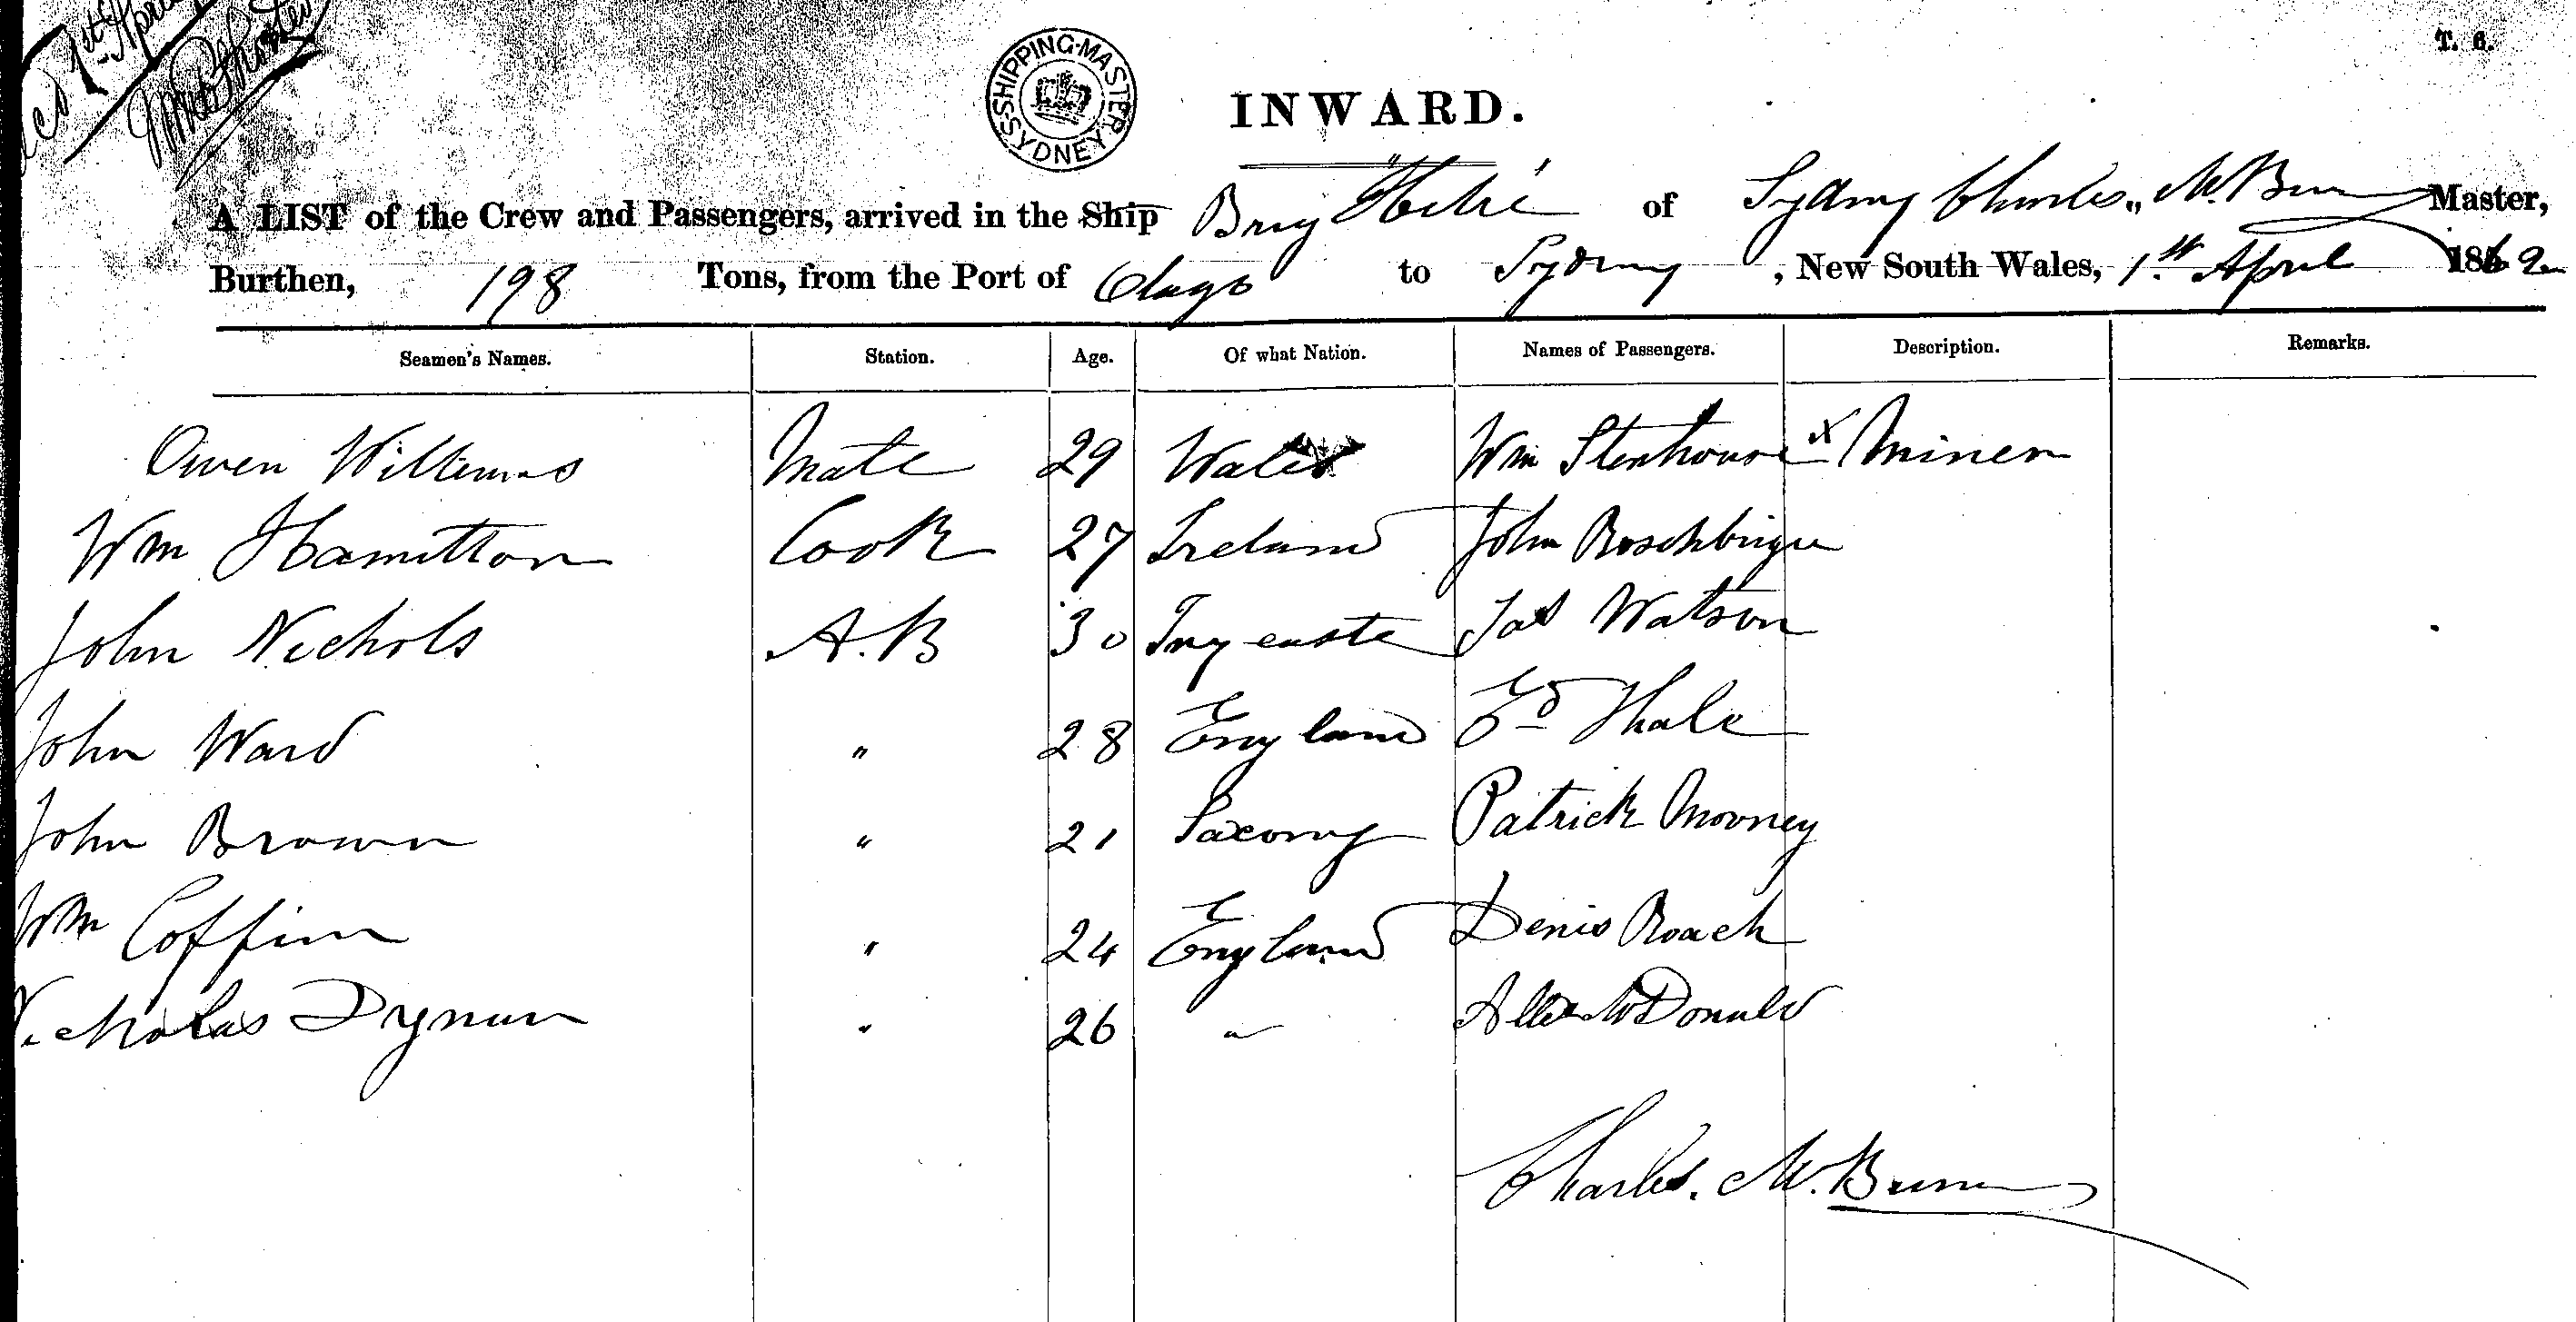 1st April
T. 6.
SHIPPING-MASTER SYDNEY
INWARD.
A LIST of the Crew and Passengers, arrived in the Ship Brig "Hebe" of Sydney Charles M. Bunn Master,
Burthen, 198 Tons, from the Port of Otago to Sydney, New South Wales, 1st April 1862
Seamen's Names. Station. Age. Of what Nation. Names of Passengers. Description. Remarks.
Owen Williams Mate 29 Wales Wm Stenhouse x Miner
Wm Hamilton Cook 27 Ireland John
John Nichols A.B 30 Jas Watson
John Ward " 28 England Ed Thale
John Brown " 21 Saxony Patrick Mooney
Wm Coffin " 24 England Denis Roach
Nicholas Dynan " 26 " McDonald
Charles. M. Bunn